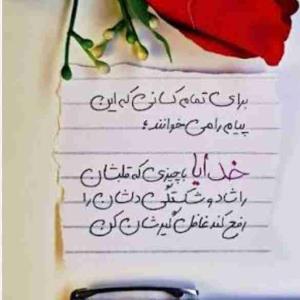 برای تمام کسانی که این
پیام را می خوانند؛
خدایا با چیزی که قلبشان
را شاد و شکستگی دلشان را
رفع کند غافل گیرشان کن